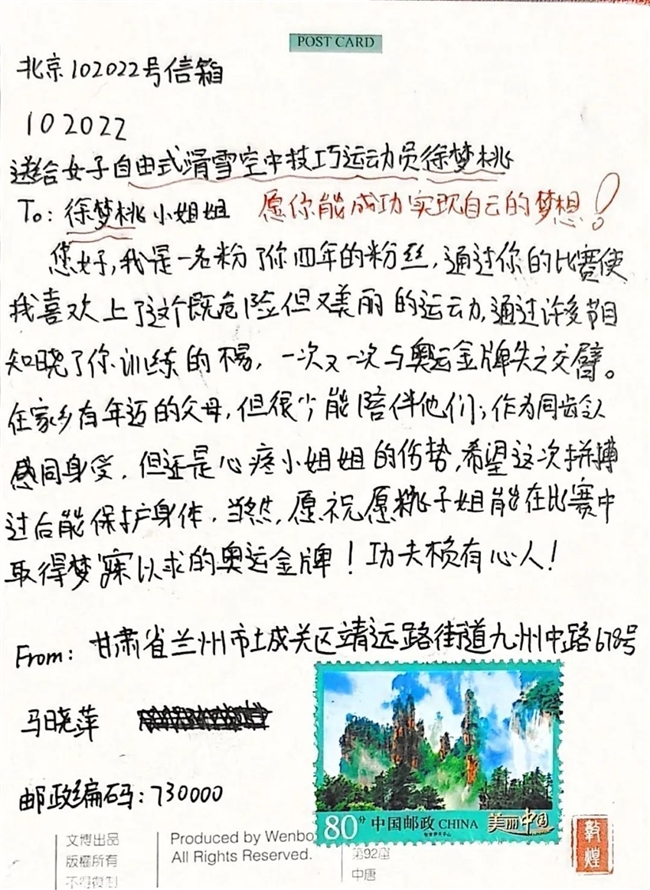 POST CARD
北京102022号信箱
102022
送给女子自由式滑雪空中技巧运动员徐梦桃
To: 徐梦桃小姐姐 愿你能成功实现自己的梦想！
您好，我是一名粉了你四年的粉丝，通过你的比赛使
我喜欢上了这个既危险但又美丽的运动，通过许多节目
知晓了你训练的不易，一次又一次与奥运金牌失之交臂。
在家乡有年迈的父母，但很少能陪伴他们；作为同龄人
感同身受，但还是心疼小姐姐的伤势，希望这次拼搏
过后能保护身体，当然，愿祝愿桃子姐能在比赛中
取得梦寐以求的奥运金牌！功夫不负有心人！
From: 甘肃省兰州市城关区靖远路街道九州中路678号
马晓萍
邮政编码：730000
80分 中国邮政 CHINA 美丽中国
文博出品
版權所有
不得複製
Produced by Wenbo
All Rights Reserved.
第92窟
中唐
敦煌